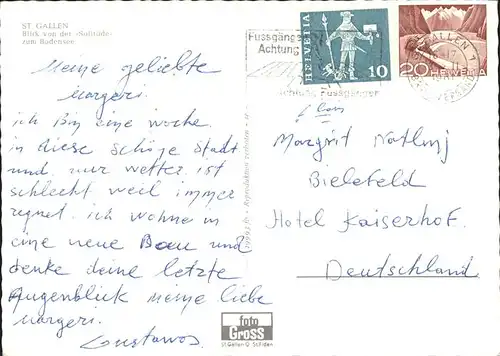 ST. GALLEN
Blick von der «Solitüde»
zum Bodensee
Meine geliebte
Margeri.
ich Bin eine woche
in diese schöne Stadt
und nur wetter ist
schlecht weil immer
regnet. ich wohne in
eine neue Bau und
denke deine letzte
Augenblick meine liebe
margeri.
Gustavos
Fussgänger
Achtung
Achtung Fussgänger
HELVETIA
10
20 HELVETIA
ST. GALLEN 1
Margrit
Bielefeld
Hotel Kaiserhof.
Deutschland
Reproduktion verboten
foto
GROSS
St.Gallen O. St.Fiden